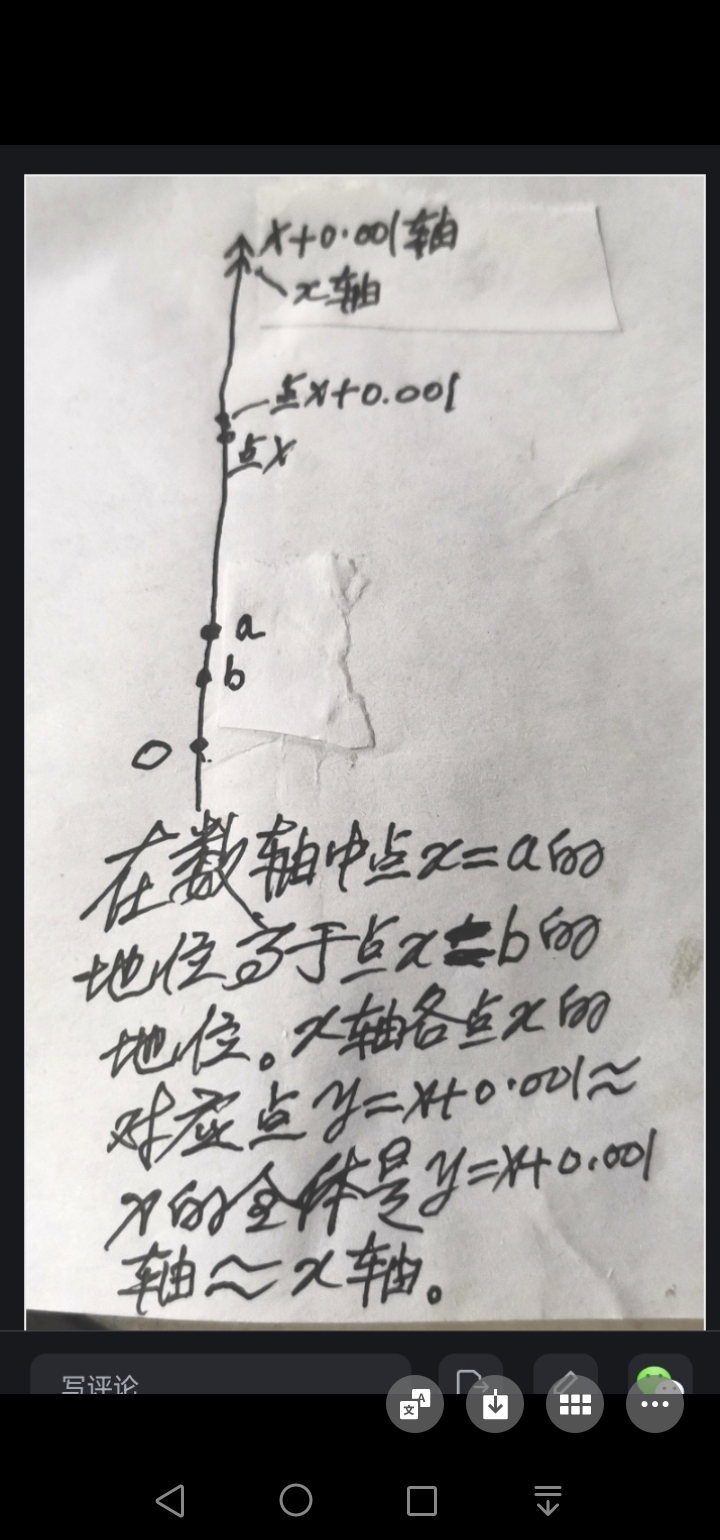 x+0.001轴
x轴
点x+0.001
点x
a
b
0
在数轴中点x=a的
地位高于点x=b的
地位。x轴各点x的
对应点y=x+0.001≈
x的全体是y=x+0.001
轴≈x轴。
写评论